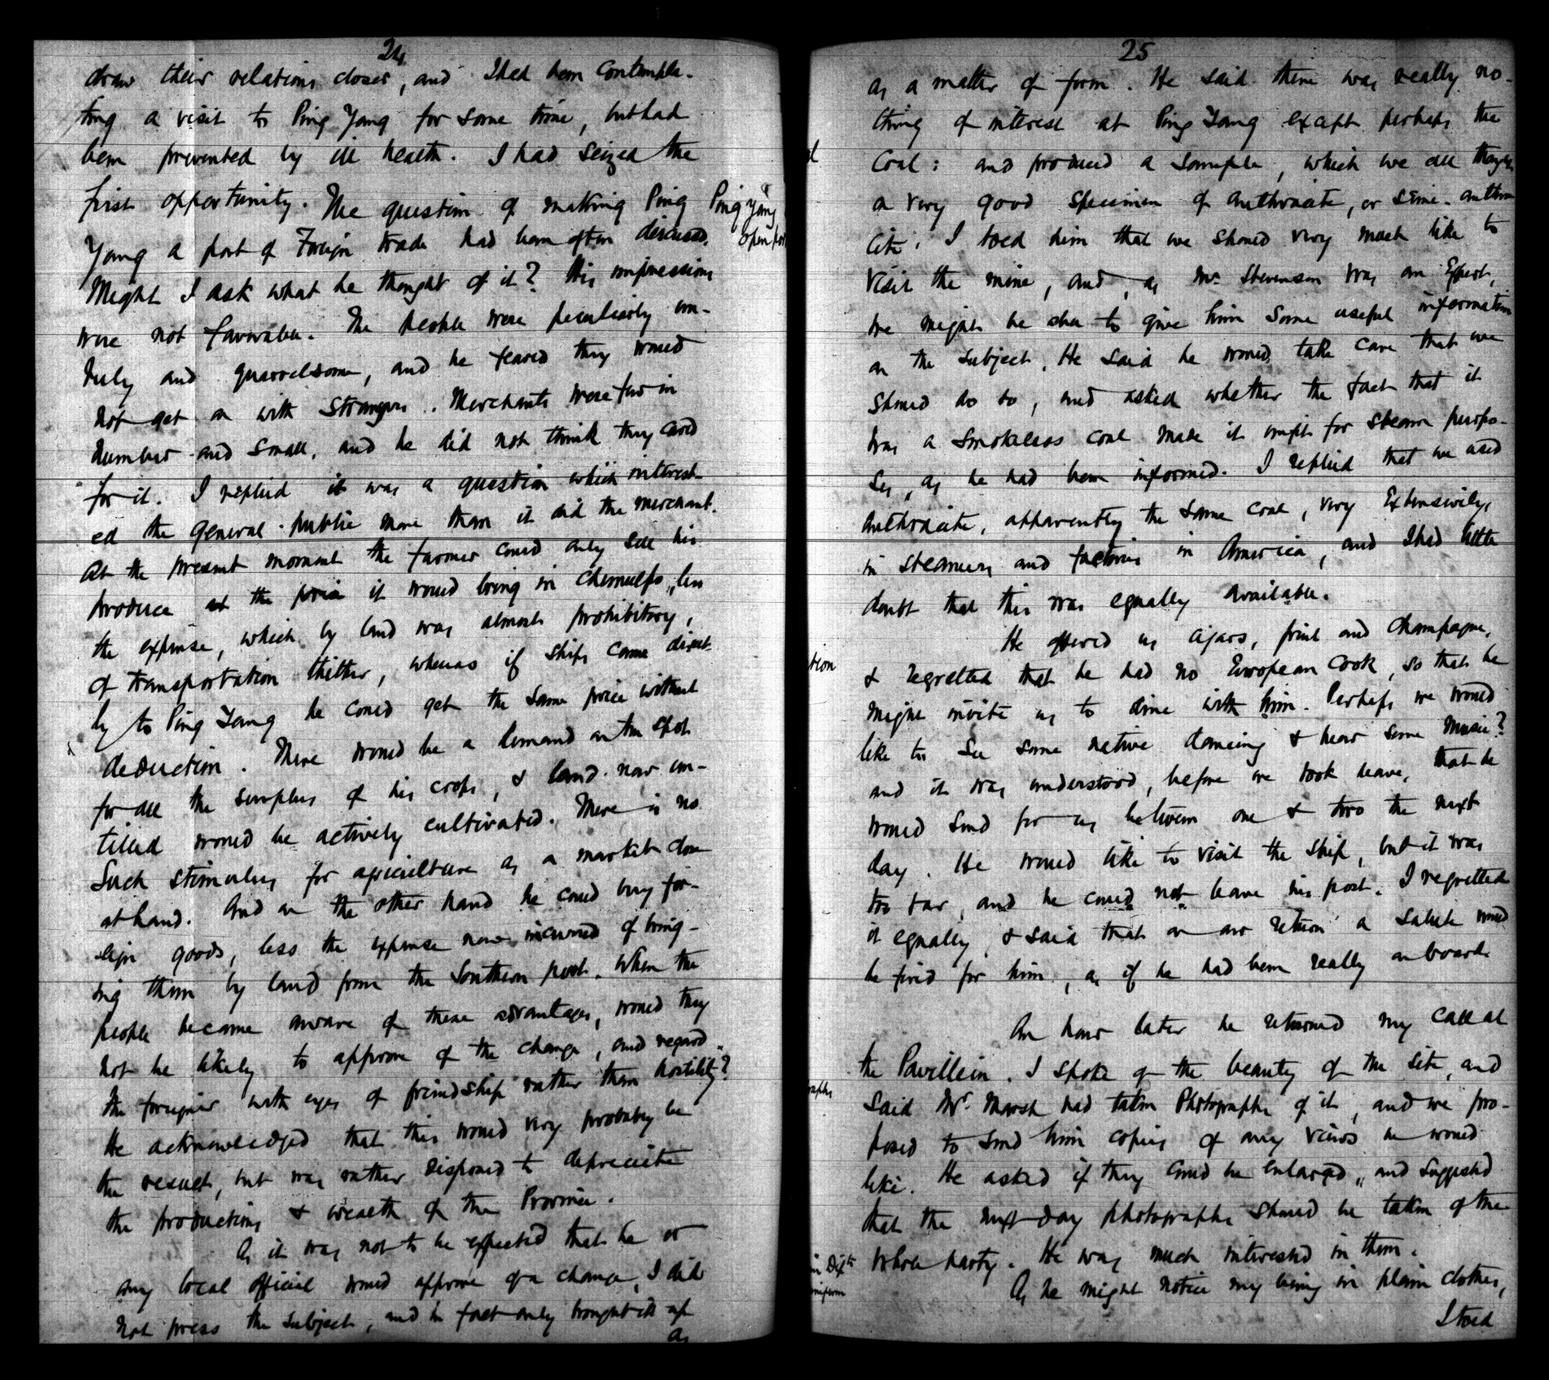 24
draw their relations closer, and I had been contempla-
ting a visit to Ping Yang for some time, but had
been prevented by ill health. I had seized the
first opportunity. The question of making Ping
Ping Yang
open port
Yang a port of Foreign trade had been often discussed.
Might I ask what he thought of it? His impressions
were not favorable. The people were peculiarly un-
ruly and quarrelsome, and he feared they would
not get on with strangers. Merchants were few in
number and small, and he did not think they cared
for it. I replied it was a question which interest-
ed the general public more than it did the merchant.
At the present moment the farmer could only sell his
produce at the price it would bring in Chemulpo, less
the expense, which by land was almost prohibitory,
of transportation thither, whereas if ships came direct-
ly to Ping Yang he could get the same price without
deduction. There would be a demand on the spot
for all the surplus of his crops, & land now un-
tilled would be actively cultivated. There is no
such stimulus for agriculture as a market close
at hand. And on the other hand he could buy for-
eign goods, less the expense now incurred of bring-
ing them by land from the Southern port. When the
people became aware of these advantages, would they
not be likely to approve of the change, and regard
the foreigner with eyes of friendship rather than hostility?
He acknowledged that this would very probably be
the result, but was rather disposed to depreciate
the productions & wealth of the Province.
As it was not to be expected that he or
any local official would approve of a change, I did
not press the subject, and in fact only brought it up
as
25
as a matter of form. He said there was really no-
thing of interest at Ping Yang except perhaps the
coal: and produced a sample, which we all thought
a very good specimen of anthracite, or semi-anthra
cite. I told him that we should very much like to
visit the mine, and, as Mr. Stevenson was an Expert,
we might be able to give him some useful information
on the subject. He said he would take care that we
should do so, and asked whether the fact that it
was a smokeless coal made it unfit for steam purpo-
ses, as he had been informed. I replied that we used
anthracite, apparently the same coal, very extensively,
in steamers and factories in America, and I had little
doubt that this was equally available.
He offered us cigars, fruit and champagne,
& regretted that he had no European cook, so that he
might invite us to dine with him. Perhaps we would
like to see some native dancing & hear some music?
and it was understood, before we took leave, that he
would send for us between one & two the next
day. He would like to visit the ship, but it was
too far, and he could not leave his post. I regretted
it equally, & said that on our return a salute would
be fired for him, as if he had been really on board.
An hour later he returned my call at
the Pavillein. I spoke of the beauty of the site, and
said Mr. Marsh had taken Photographs of it, and we pro-
posed to send him copies of any views he would
like. He asked if they could be enlarged, and suggested
that the next day photographs should be taken of the
whole party. He was much interested in them.
As he might notice my being in plain clothes,
I told